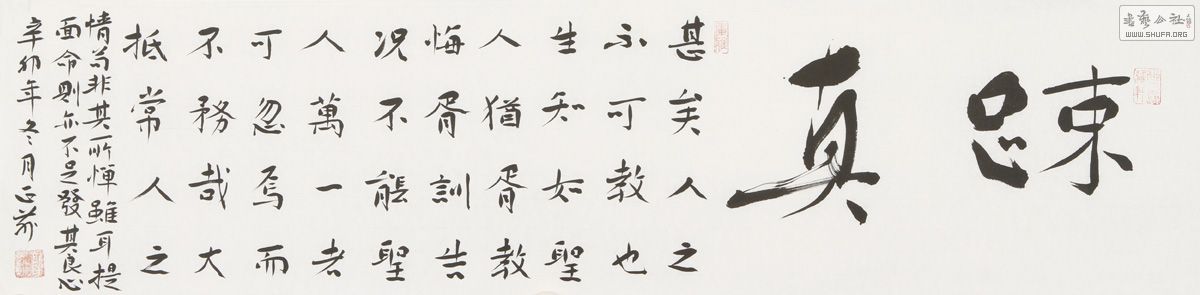 書藝公社
WWW.SHUFA.ORG
踈真
甚矣人之
不可教也
生知如聖
人猶胥教
悔胥訓告
况不能聖
人萬一者
可忽焉而
不務哉大
抵常人之
情苟非其所憚雖耳提
面命則亦不足發其良心
辛卯年冬月